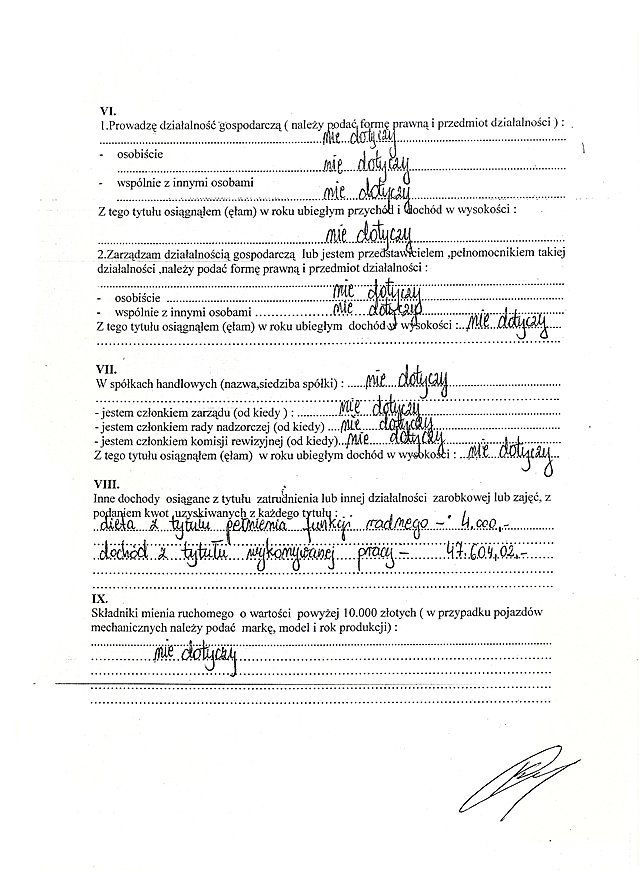 VI.
1.Prowadzę działalność gospodarczą ( należy podać formę prawną i przedmiot działalności ) :
nie dotyczy
- osobiście
nie dotyczy
- wspólnie z innymi osobami
nie dotyczy
Z tego tytułu osiągnąłem (ęłam) w roku ubiegłym przychód i dochód w wysokości :
nie dotyczy
2.Zarządzam działalnością gospodarczą lub jestem przedstawicielem ,pełnomocnikiem takiej
działalności ,należy podać formę prawną i przedmiot działalności :
- osobiście ..... nie dotyczy
- wspólnie z innymi osobami ..... nie dotyczy
Z tego tytułu osiągnąłem (ęłam) w roku ubiegłym dochód w wysokości :..nie dotyczy
VII.
W spółkach handlowych (nazwa,siedziba spółki) : ..... nie dotyczy
- jestem członkiem zarządu (od kiedy ) : ..... nie dotyczy
- jestem członkiem rady nadzorczej (od kiedy) ....nie dotyczy
- jestem członkiem komisji rewizyjnej (od kiedy)...nie dotyczy
Z tego tytułu osiągnąłem (ęłam) w roku ubiegłym dochód w wysokości : ..nie dotyczy
VIII.
Inne dochody osiągane z tytułu zatrudnienia lub innej działalności zarobkowej lub zajęć, z
podaniem kwot uzyskiwanych z każdego tytułu :
dieta z tytułu pełnienia funkcji radnego - 4.000,-
dochód z tytułu wykonywanej pracy - 47.604,02.-
IX.
Składniki mienia ruchomego o wartości powyżej 10.000 złotych ( w przypadku pojazdów
mechanicznych należy podać markę, model i rok produkcji) :
nie dotyczy